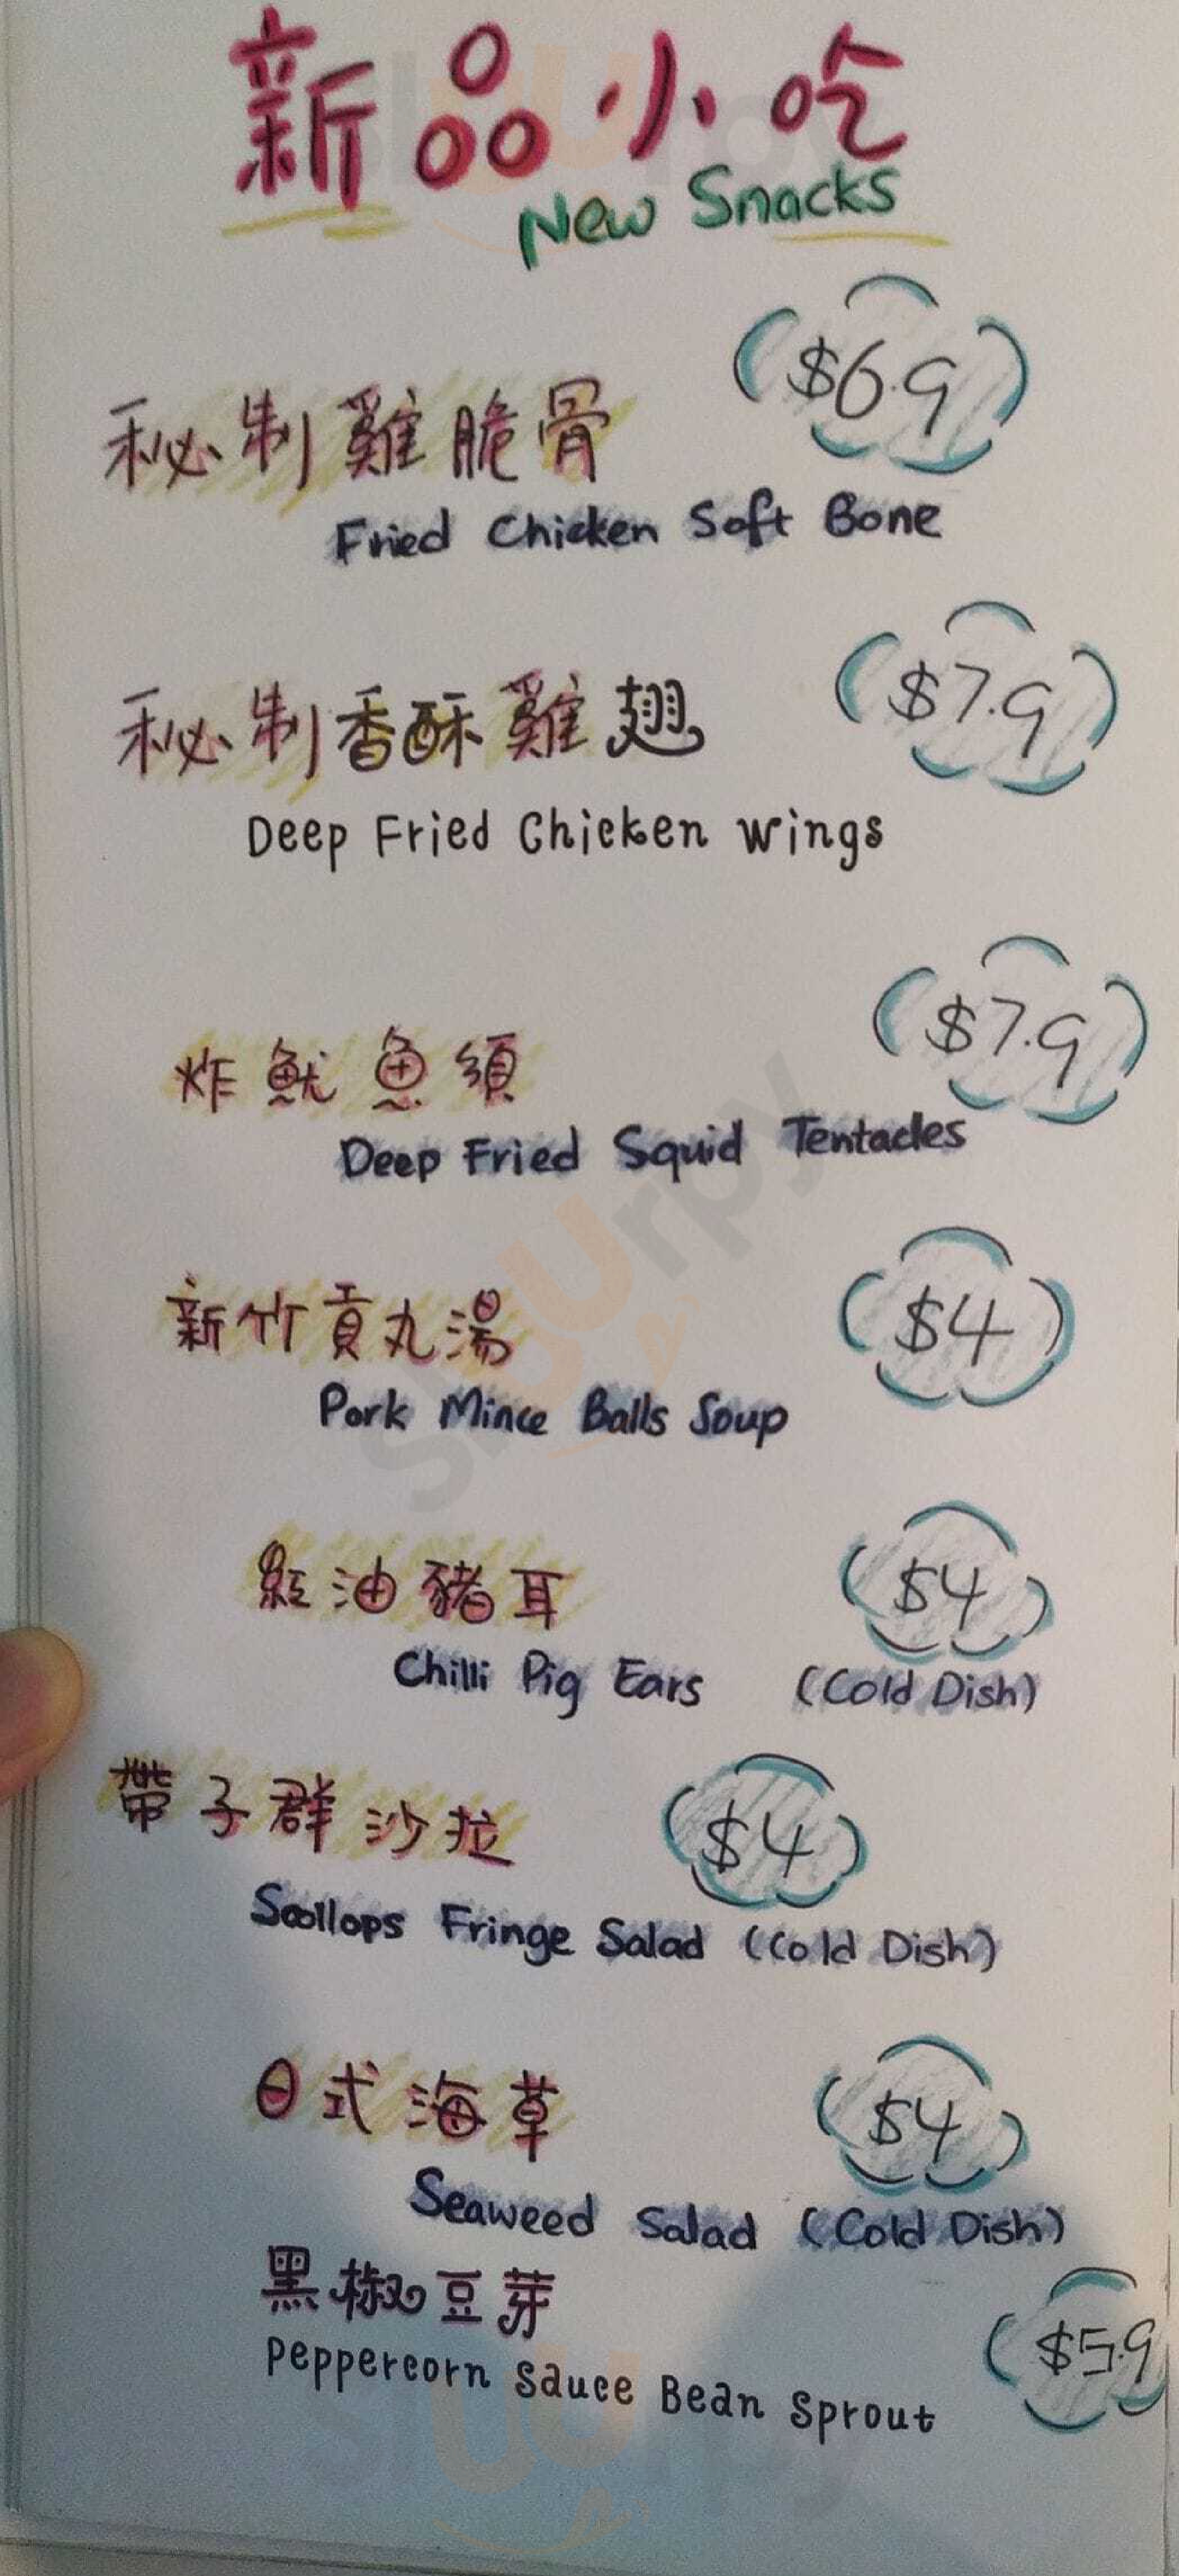 新品小吃
New Snacks
$6.9
秘制雞脆骨
Fried Chicken Soft Bone
$7.9
秘制香酥雞翅
Deep Fried Chicken Wings
$7.9
炸魷魚須
Deep Fried Squid Tentacles
新竹貢丸湯 $4
Pork Mince Balls Soup
紅油豬耳 $4
Chilli Pig Ears (Cold Dish)
帶子群沙拉 $4
Scollops Fringe Salad (Cold Dish)
日式海草 $4
Seaweed Salad (Cold Dish)
黑椒豆芽
Peppercorn Sauce Bean Sprout $5.9
Sluurpy